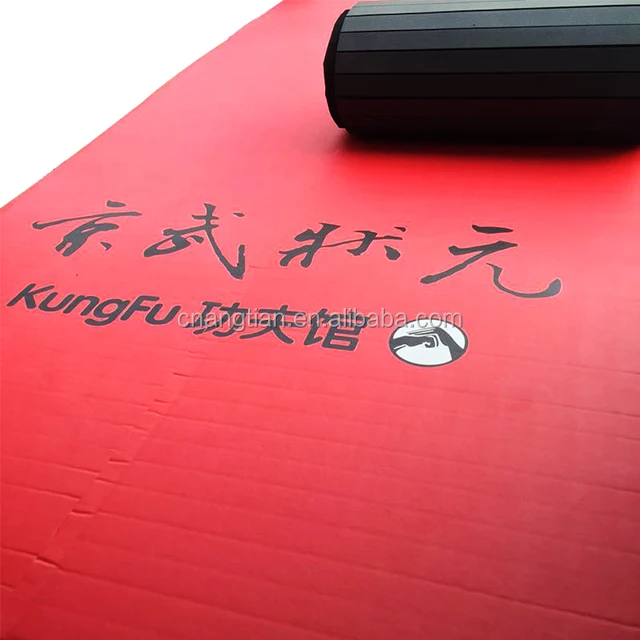 京武状元
KungFu 功夫馆
cnangtian.en.alibaba.com